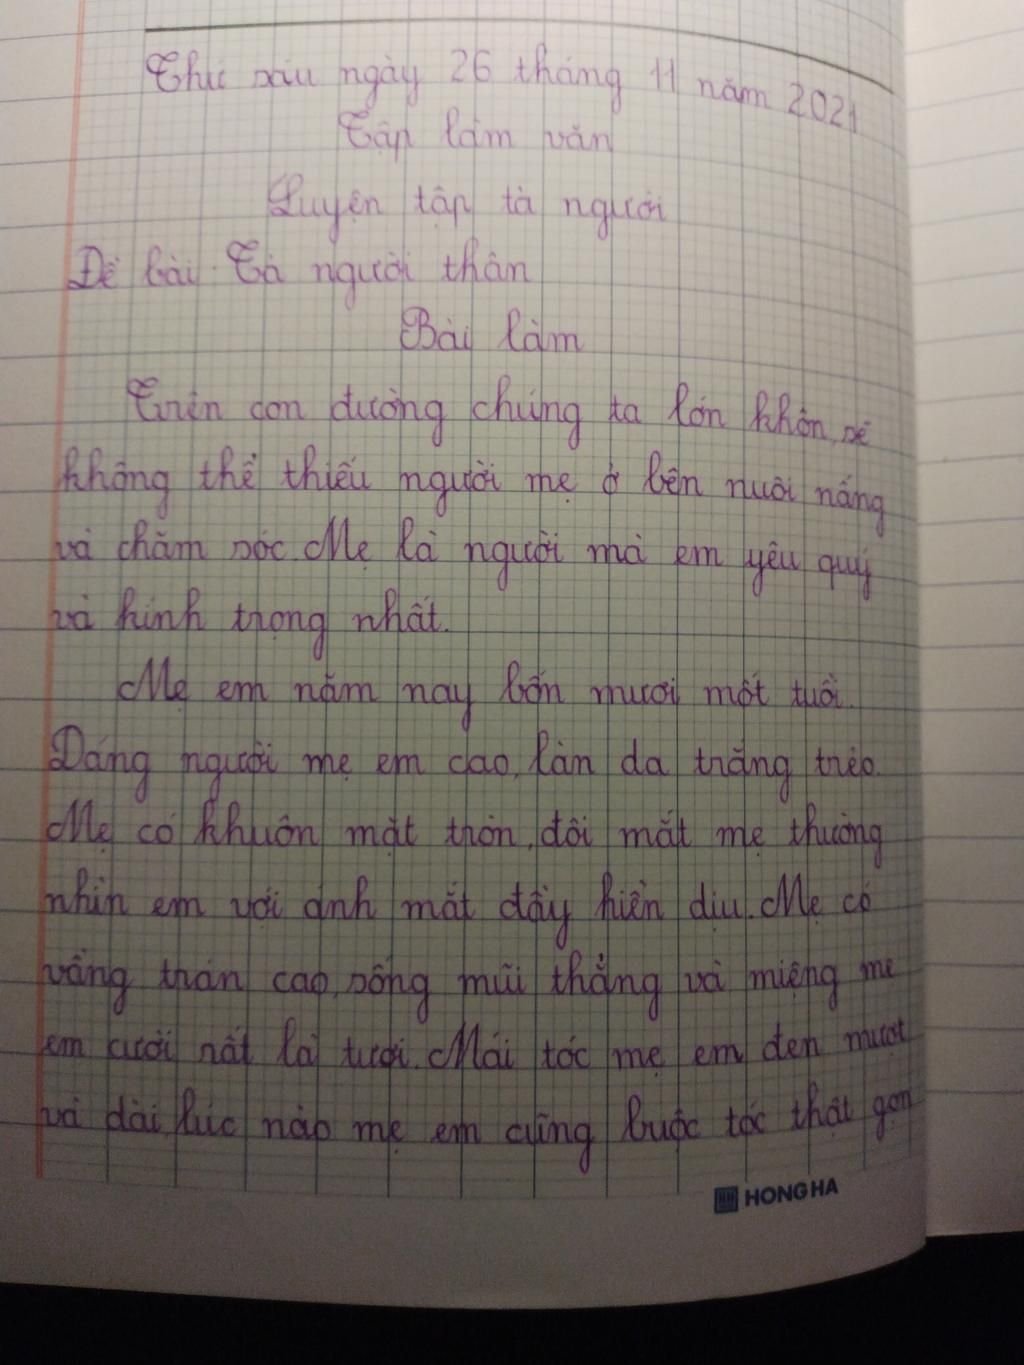 Thứ sáu ngày 26 tháng 11 năm 2021
Tập làm văn
Luyện tập tả người
Đề bài: Tả người thân
Bài làm
Trên con đường chúng ta lớn khôn, sẽ
không thể thiếu người mẹ ở bên nuôi nấng
và chăm sóc. Mẹ là người mà em yêu quý
và kính trọng nhất.
Mẹ em năm nay bốn mươi mốt tuổi.
Dáng người mẹ em cao, làn da trắng trẻo.
Mẹ có khuôn mặt tròn, đôi mắt mẹ thường
nhìn em với ánh mắt đầy hiền dịu. Mẹ có
vầng trán cao, sống mũi thẳng và miệng mẹ
em cười rất là tươi. Mái tóc mẹ em đen mượt
và dài, lúc nào mẹ em cũng buộc tóc thật gọn
HONG HA